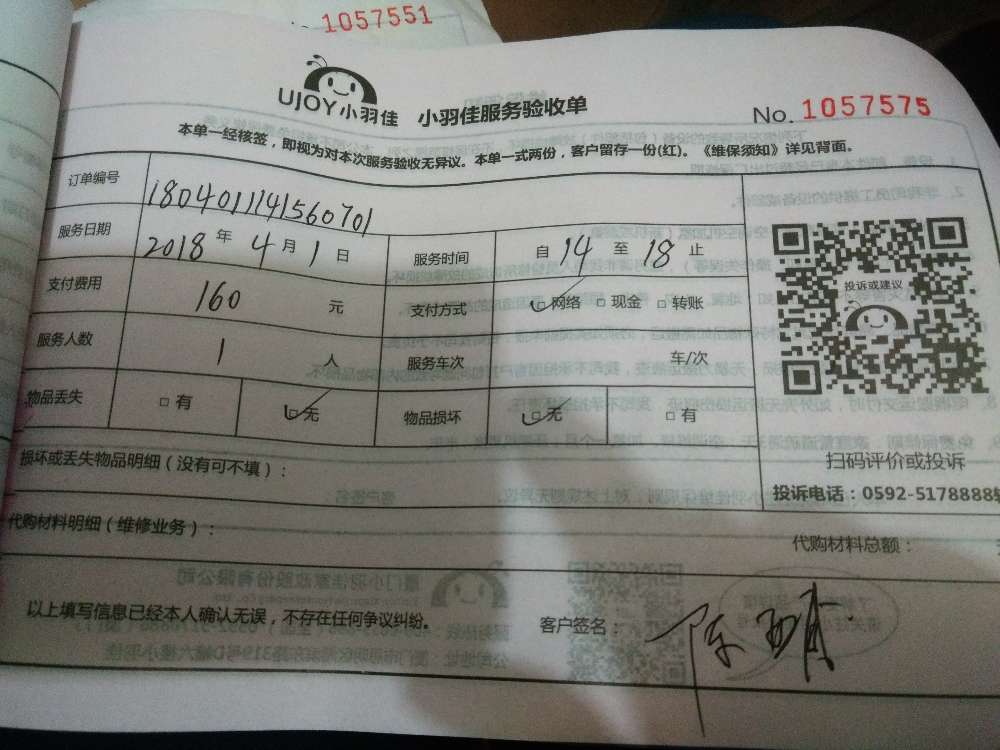 1057551
UJOY小羽佳 小羽佳服务验收单
No. 1057575
本单一经核签，即视为对本次服务验收无异议。本单一式两份，客户留存一份(红)。《维保须知》详见背面。
订单编号 1804011141560701
服务日期 2018 年 4 月 1 日 服务时间 自 14 至 18 止
支付费用 160 元 支付方式 □网络 □现金 □转账
服务人数 1 人 服务车次 车/次
物品丢失 □有 □无 物品损坏 □无 □有
投诉或建议
扫码评价或投诉
投诉电话：0592-5178888转
损坏或丢失物品明细（没有可不填）：
代购材料明细（维修业务）：
代购材料总额：
以上填写信息已经本人确认无误，不存在任何争议纠纷。 客户签名：